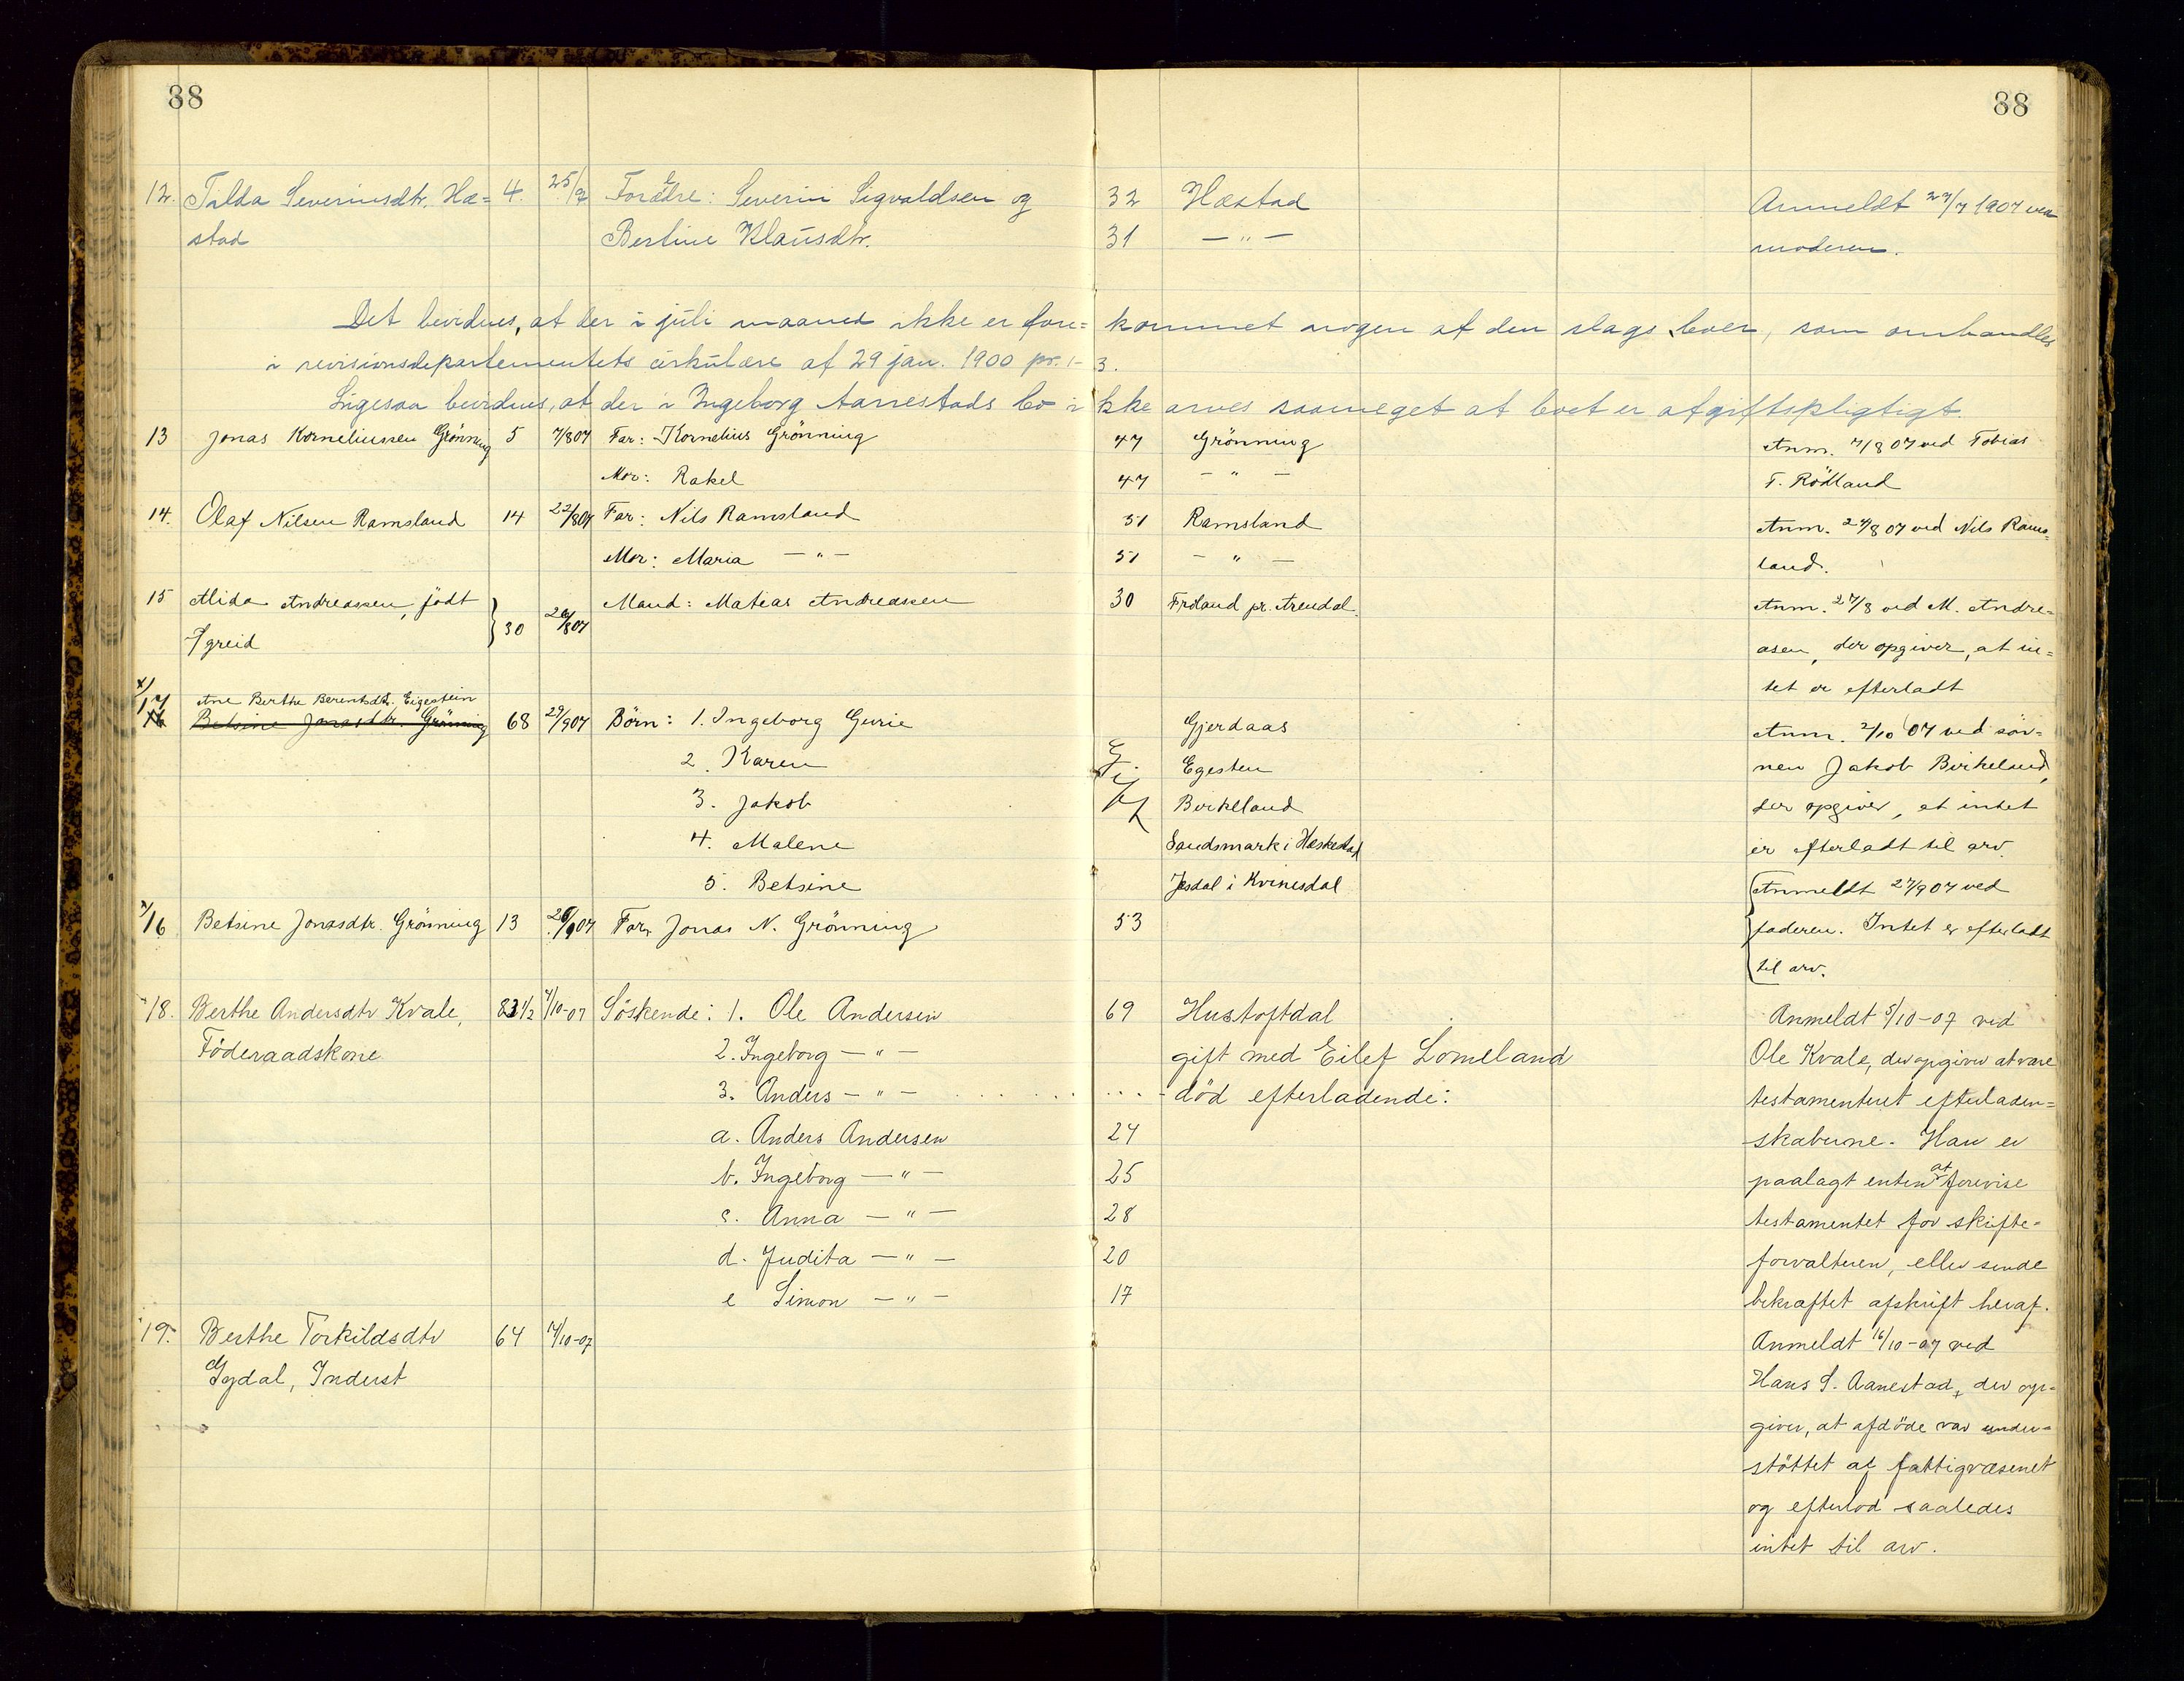 38
88
12. Tilda Severinsdtr. Hæ= 4. 25/7 Forældre: Severin Sigvaldsen og 32 Hæstad Anmeldt 27/7 1907 ved
stad Bertine Klausdtr. 31 — " — moderen.
Det bevidnes, at der i juli maaned ikke er fore= kommet nogen af den slags boer, som omhandles
i revisionsdepartementets cirkulære af 29 jan. 1900 pr. 1-3.
Ligesaa bevidnes, at der i Ingeborg Aarrestads bo ikke arves saameget at boet er afgiftspligtigt.
13 Jonas Korneliussen Grönning 5 7/8 07 Far: Kornelius Grönning 47 Grönning Anm. 7/8 07 ved Tobias
Mor: Rakel 47 — " — T. Rödland
14. Olaf Nilsen Ramsland 14 22/8 07 Far: Nils Ramsland 51 Ramsland Anm. 27/8 07 ved Nils Rams=
Mor: Maria — " — 51 — " — land.
15 Alida Andreassen, födt 30 26/8 07 Mand: Matias Andreassen 30 Fröland pr. Arendal. Anm. 27/8 ved M. Andre=
Igreid asen, der opgiver, at in=
tet er efterladt
x/ Ane Berthe Berentsdtr. Eigestein
17 Betsine Jonasdtr. Grönning 68 29/9 07 Börn: 1. Ingeborg Gurie Gjerdaas Anm. 2/10 07 ved søn=
2. Karen Egesten nen Jakob Birkeland,
3. Jakob Birkeland der opgiver, at intet
4. Malene Sandsmark i Heskestad er efterladt til arv.
5. Betsine Jesdal i Kvinesdal Anmeldt 27/9 07 ved
x/16 Betsine Jonasdtr. Grönning 13 26/9 07 Far, Jonas N. Grönning 53 faderen. Intet er efterladt
til arv.
18. Berthe Andersdtr Kvale, 83 1/2 4/10-07 Söskende: 1. Ole Andersen 69 Hustoftdal Anmeldt 5/10-07 ved
Föderaadskone. 2. Ingeborg — " — gift med Eilef Lomeland Ole Kvale, der opgiver at være
3. Anders — " — . . . . . . . . død efterladende: testamenteret efterladen=
a. Anders Andersen 24 skaberne. Han er
b. Ingeborg — " — 25 paalagt enten at forevise
c. Anna — " — 28 testamentet for skifte=
d. Judita — " — 20 forvalteren, eller sende
e Simon — " — 17 bekræftet afskrift heraf.
19. Berthe Torkildsdtr 64 14/10-07 Anmeldt 16/10-07 ved
Gydal, Inderst Hans S. Aanestad, der op=
giver, at afdöde var under=
stöttet af fattigvæsenet
og efterlod saaledes
intet til arv.